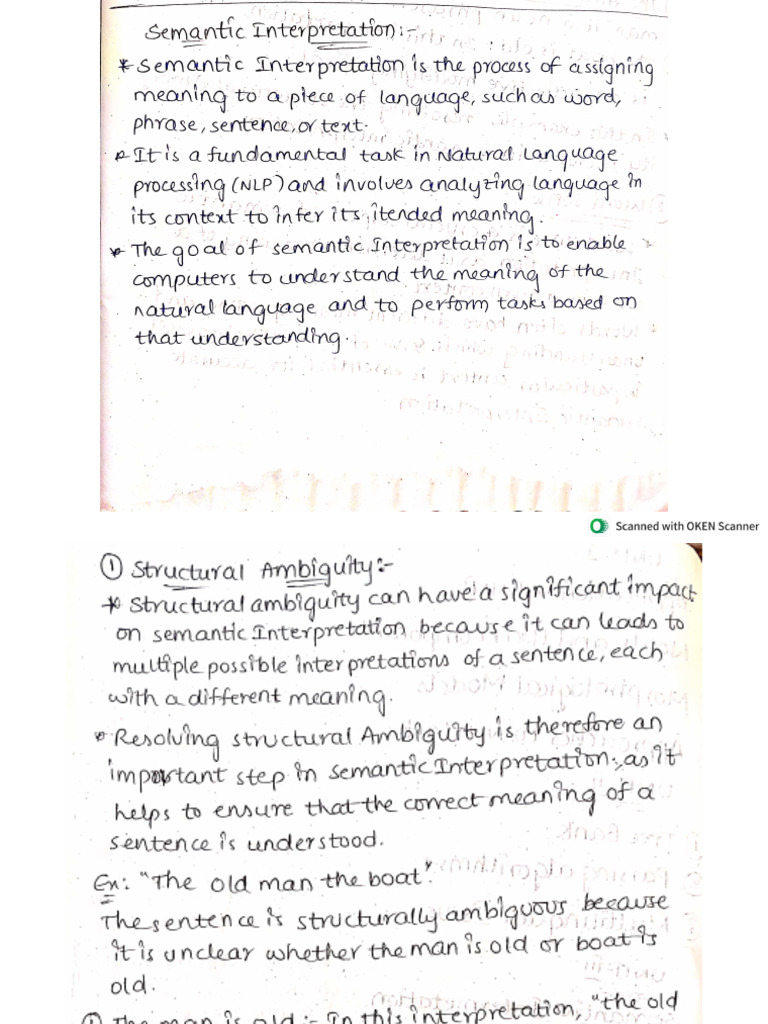 Semantic Interpretation:-
* Semantic Interpretation is the process of assigning
meaning to a piece of language, such as word,
phrase, sentence, or text.
* It is a fundamental task in Natural Language
processing (NLP) and involves analyzing language in
its context to infer its itended meaning.
* The goal of semantic Interpretation is to enable
computers to understand the meaning of the
natural language and to perform tasks based on
that understanding.
Scanned with OKEN Scanner
① Structural Ambiguity:-
* Structural ambiguity can have a significant impact
on semantic Interpretation because it can leads to
multiple possible interpretations of a sentence, each
with a different meaning.
* Resolving structural Ambiguity is therefore an
important step in semantic Interpretation, as it
helps to ensure that the correct meaning of a
sentence is understood.
Ex: "The old man the boat".
The sentence is structurally ambiguous because
it is unclear whether the man is old or boat is
old.
① The man is old:- In this interpretation, "the old